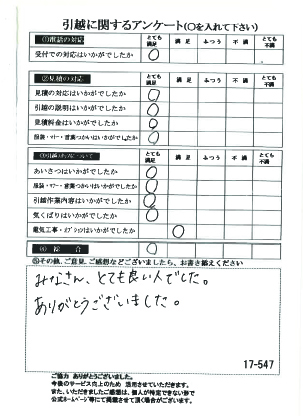 引越に関するアンケート(○を入れて下さい)
①電話の対応 とても満足 満足 ふつう 不満 とても不満
受付での対応はいかがでしたか ○
②見積の対応 とても満足 満足 ふつう 不満 とても不満
見積の対応はいかがでしたか ○
引越の説明はいかがでしたか ○
見積料金はいかがでしたか ○
服装・マナー・言葉づかいはいかがでしたか ○
とても満足 満足 ふつう 不満 とても不満
あいさつはいかがでしたか ○
服装・マナー・言葉づかいはいかがでしたか ○
引越作業内容はいかがでしたか ○
気くばりはいかがでしたか ○
電気工事・オプションはいかがでしたか ○
④総合 ○
⑤その他、ご意見、ご感想などございましたら、お書き添えください
みなさん、とても良い人でした。
ありがとうございました。
17-547
ご協力 ありがとうございました。
今後のサービス向上のため 活用させていただきます。
また、いただきましたご感想は、個人が特定できない形で
公式ホームページ等にて掲載させて頂く場合がございます。